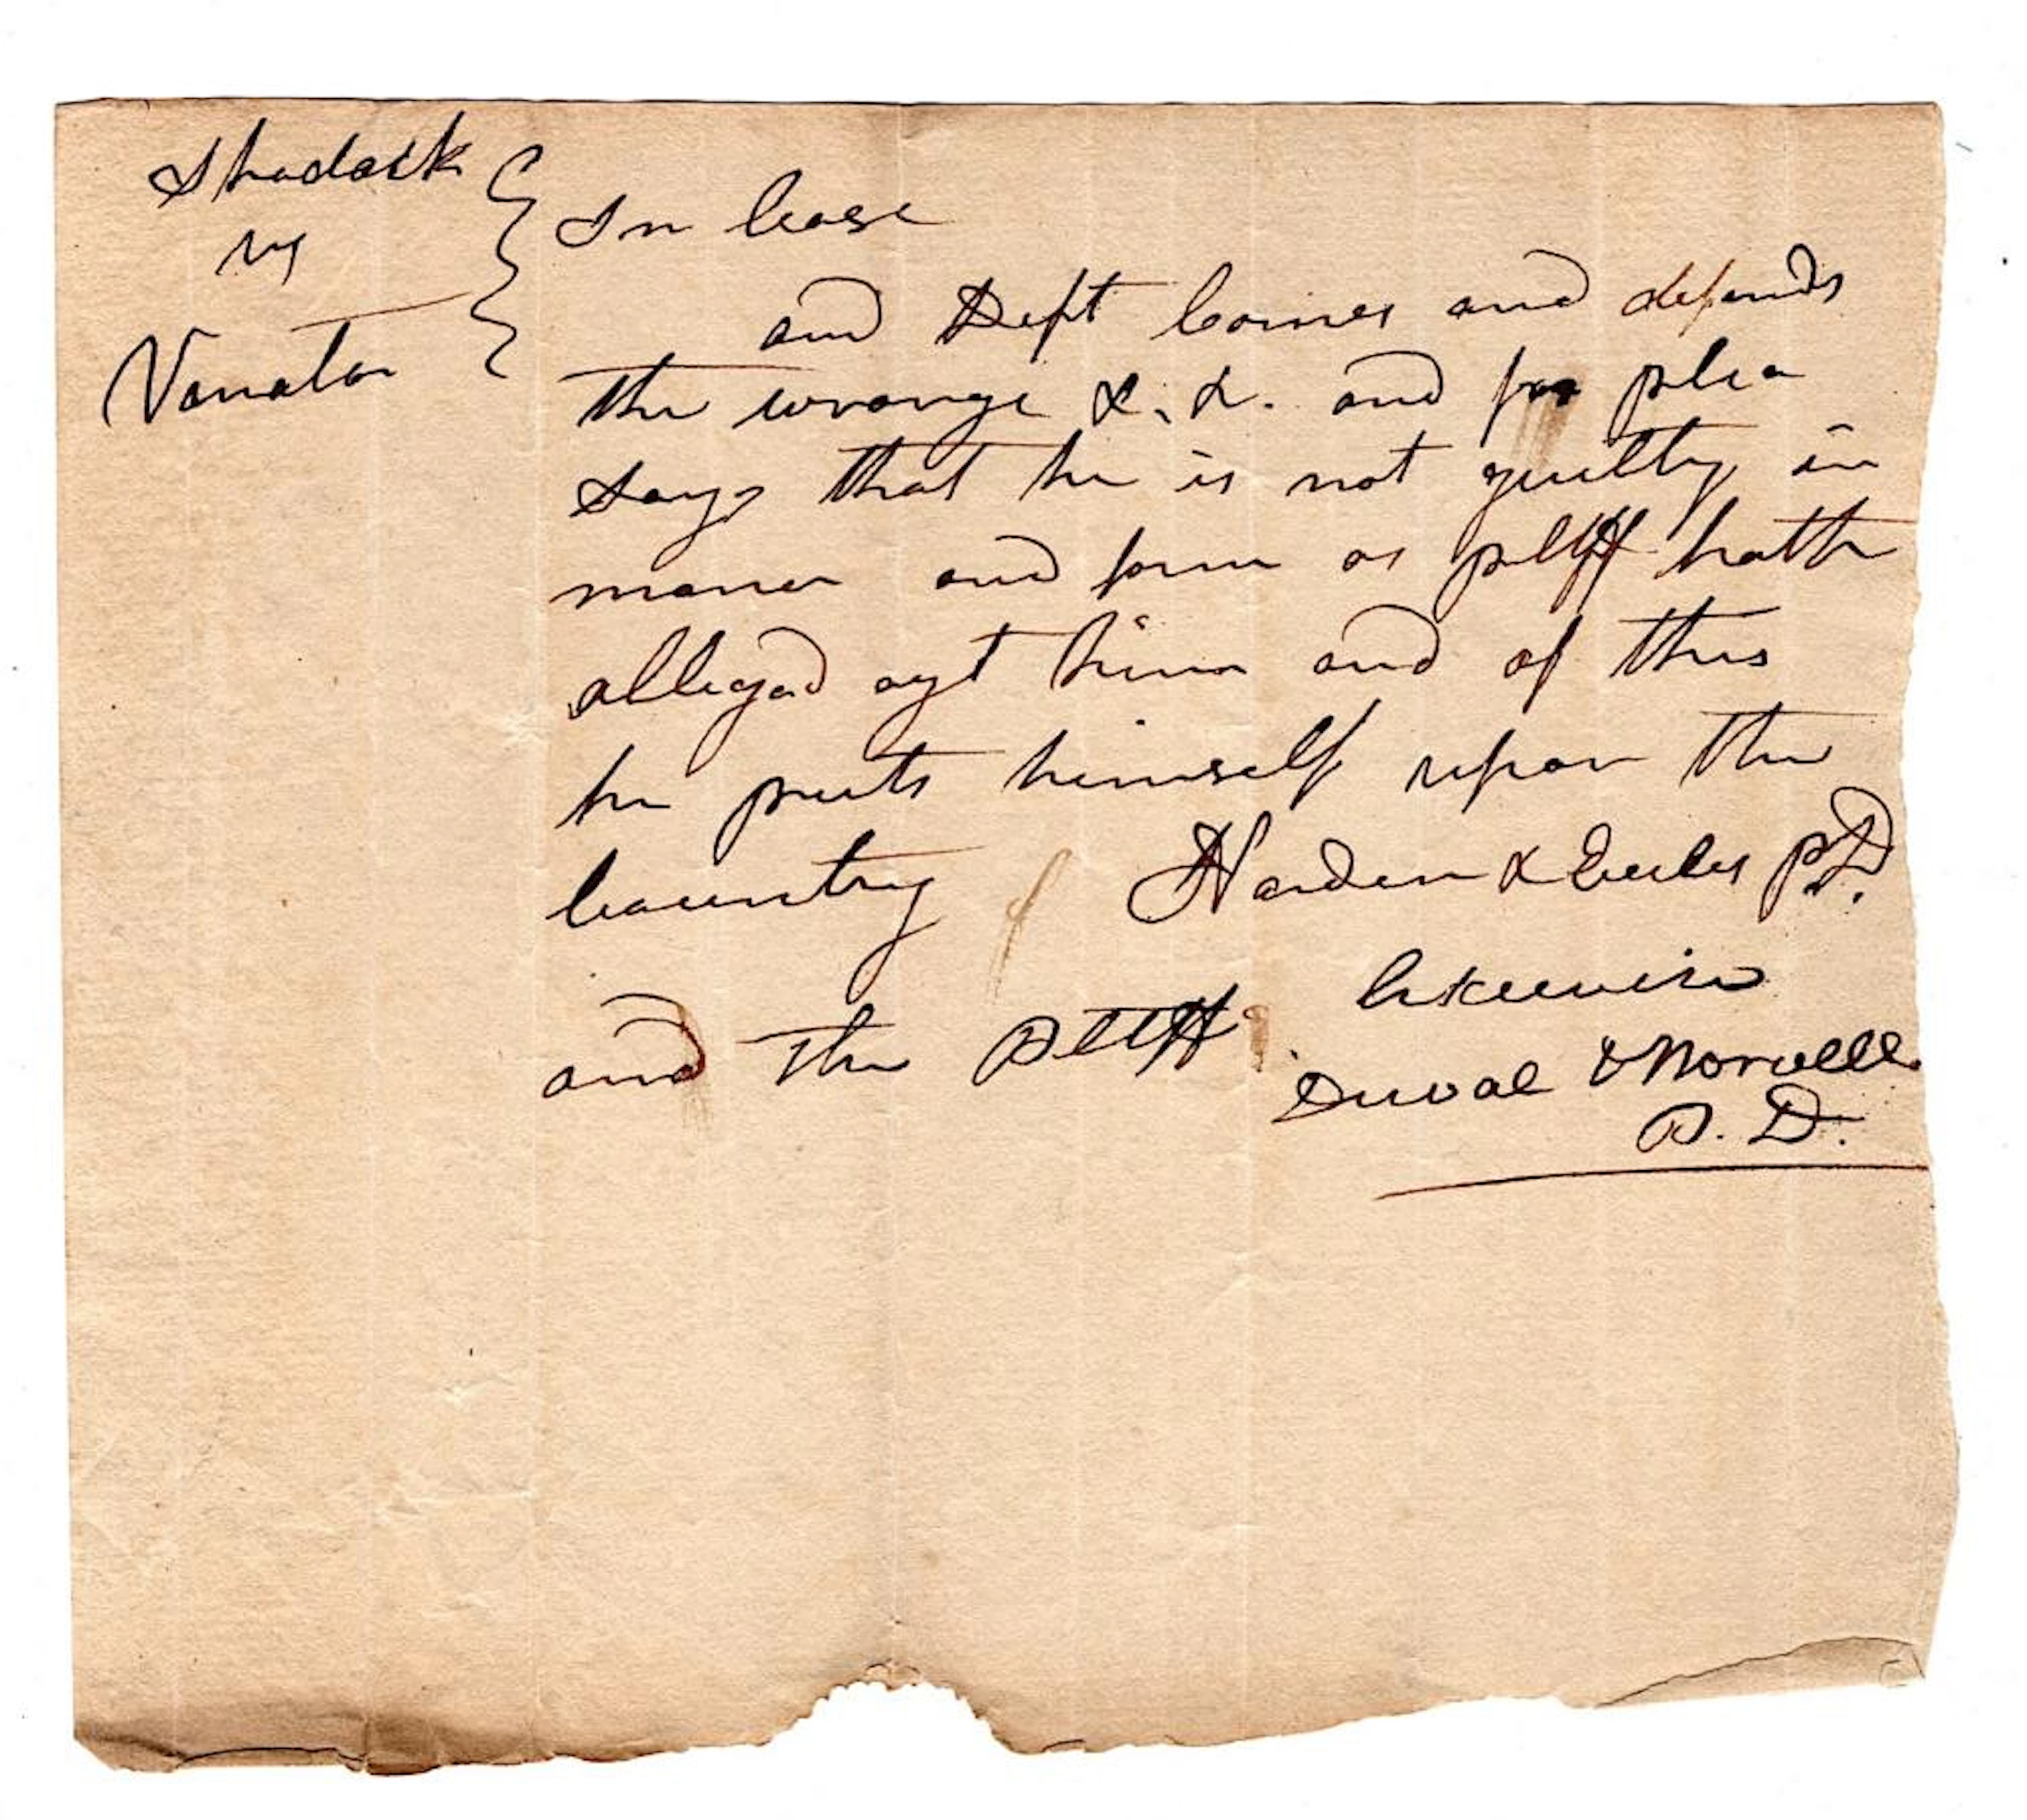 Shadock
vs
Vanata
In Case
and Deft Comes and defends
the wrongs &. &. and for plea
says that he is not guilty in
maner and form as pltff hath
alleged agt him and of this
he puts himself upon the
Country Harden & Eccles p.D.
and the Pltff likewise
Duval & Norvell
P. D.